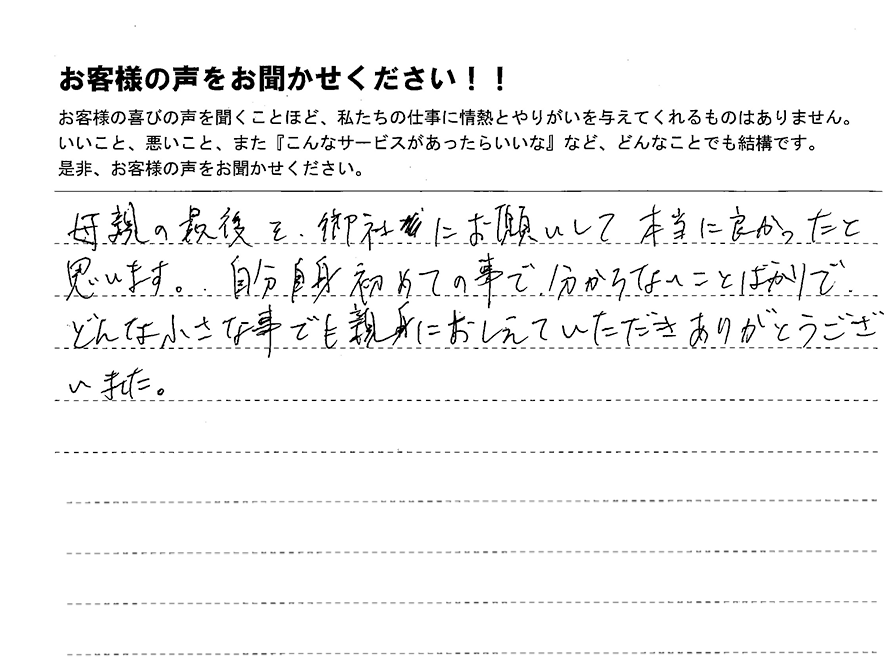 お客様の声をお聞かせください！！
お客様の喜びの声を聞くことほど、私たちの仕事に情熱とやりがいを与えてくれるものはありません。
いいこと、悪いこと、また『こんなサービスがあったらいいな』など、どんなことでも結構です。
是非、お客様の声をお聞かせください。
母親の最後を、御社にお願いして本当に良かったと
思います。自分自身初めての事で、分からないことばかりで、
どんな小さな事でも親身におしえていただきありがとうござ
いました。